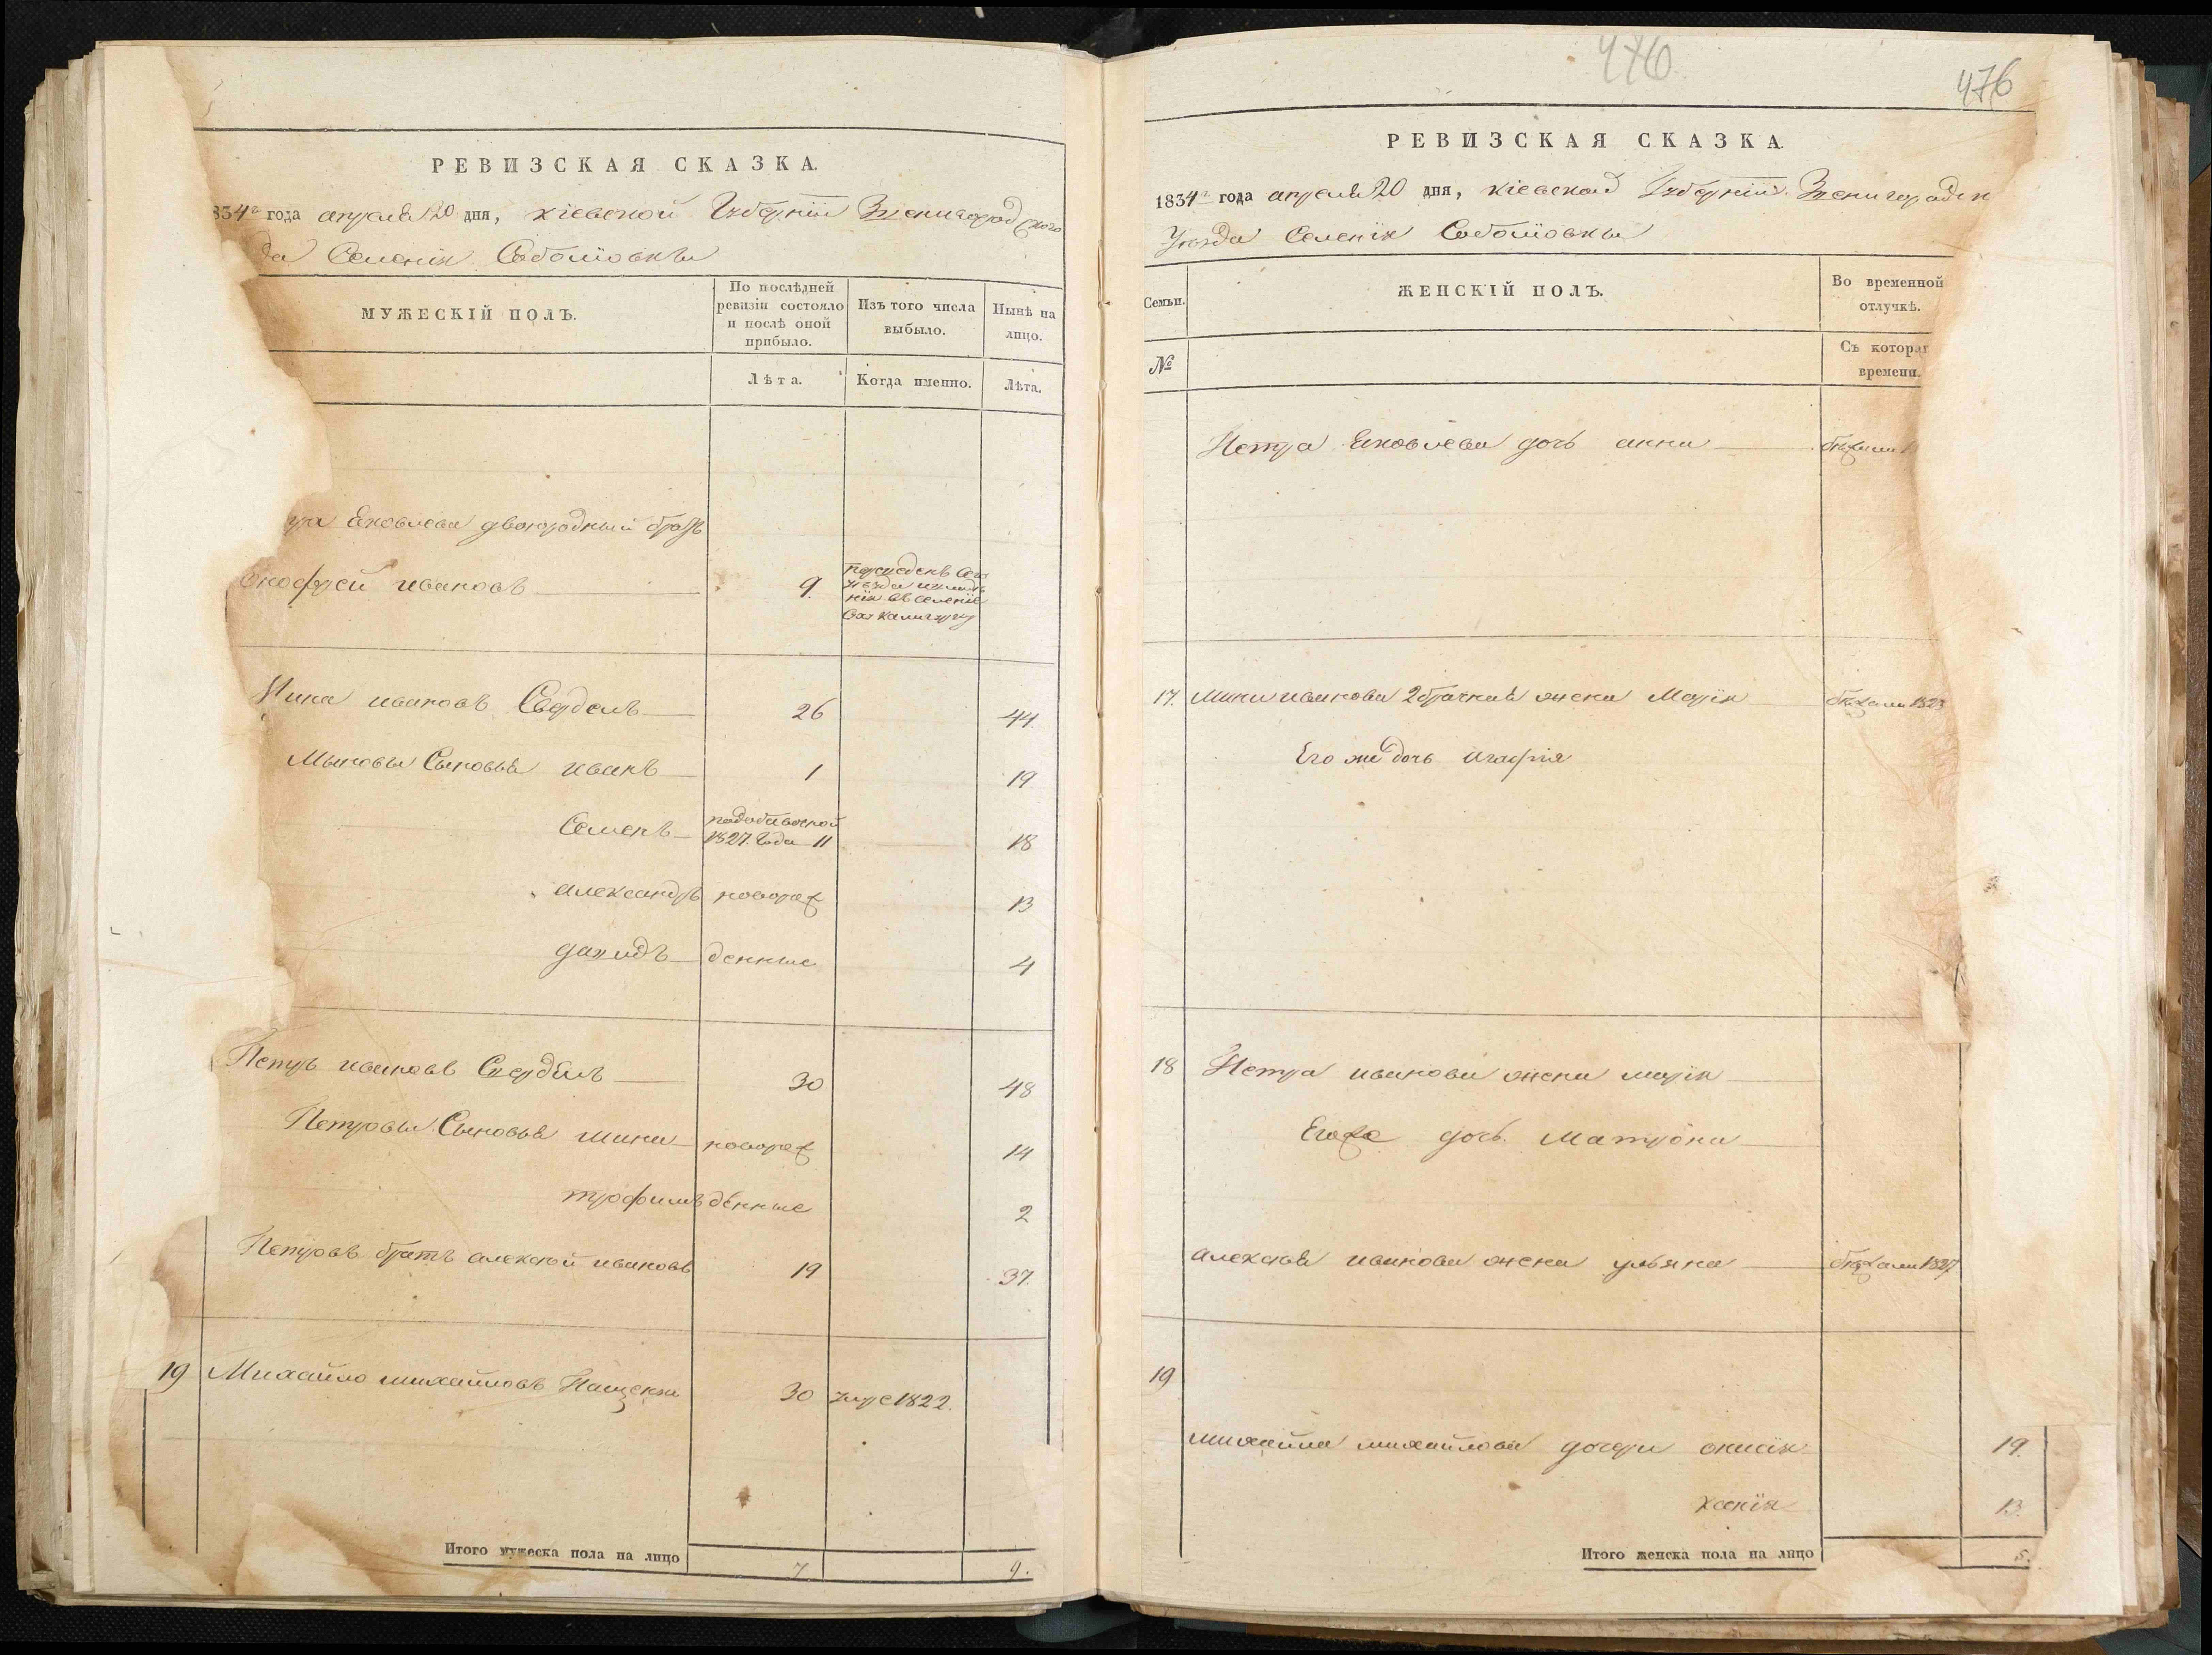 РЕВИЗСКАЯ СКАЗКА.
834го года апреля 20 дня, Кіевской Губерніи Звенигородского
да Селенія Соболювки
МУЖЕСКІЙ ПОЛЪ.
По послѣдней ревизіи состояло и послѣ оной прибыло.
Изъ того числа выбыло.
Нынѣ на лицо.
Лѣта.
Когда именно.
Лѣта.
Яковлева двоюродный братъ
Онофрей Ивановъ 9.
Мина Ивановъ 26 44.
Миновы Сыновья Иванъ 1 19
Семенъ 1827. Года 11 18
Александръ новорож 13
денные 4
Петръ Ивановъ 30 48
Петровы Сыновья Мина новорож 14
Трофимъ денные 2
Петровъ братъ Алексѣй Ивановъ 19 37.
19 Михайло Михайловъ 30 умре 1822.
Итого мужеска пола на лицо 7. 9.
476
476
РЕВИЗСКАЯ СКАЗКА.
1834го года апреля 20 дня, Кіевской Губерніи Звенигородск
Уѣзда Селенія Соболювки
Семьи.
ЖЕНСКІЙ ПОЛЪ.
Во временной отлучкѣ.
№
Съ котораг времени.
Петра Яковлева дочь Анна
17. Мины Иванова 2 брачная жена Марія 1823
Его же дочь Агафія
18 Петра Иванова жена Марія
Его же дочь. Матрона
Алексѣя Иванова жена Ульяна 1827
19
Михайла Михайлова дочери 19.
13.
Итого женска пола на лицо 5.